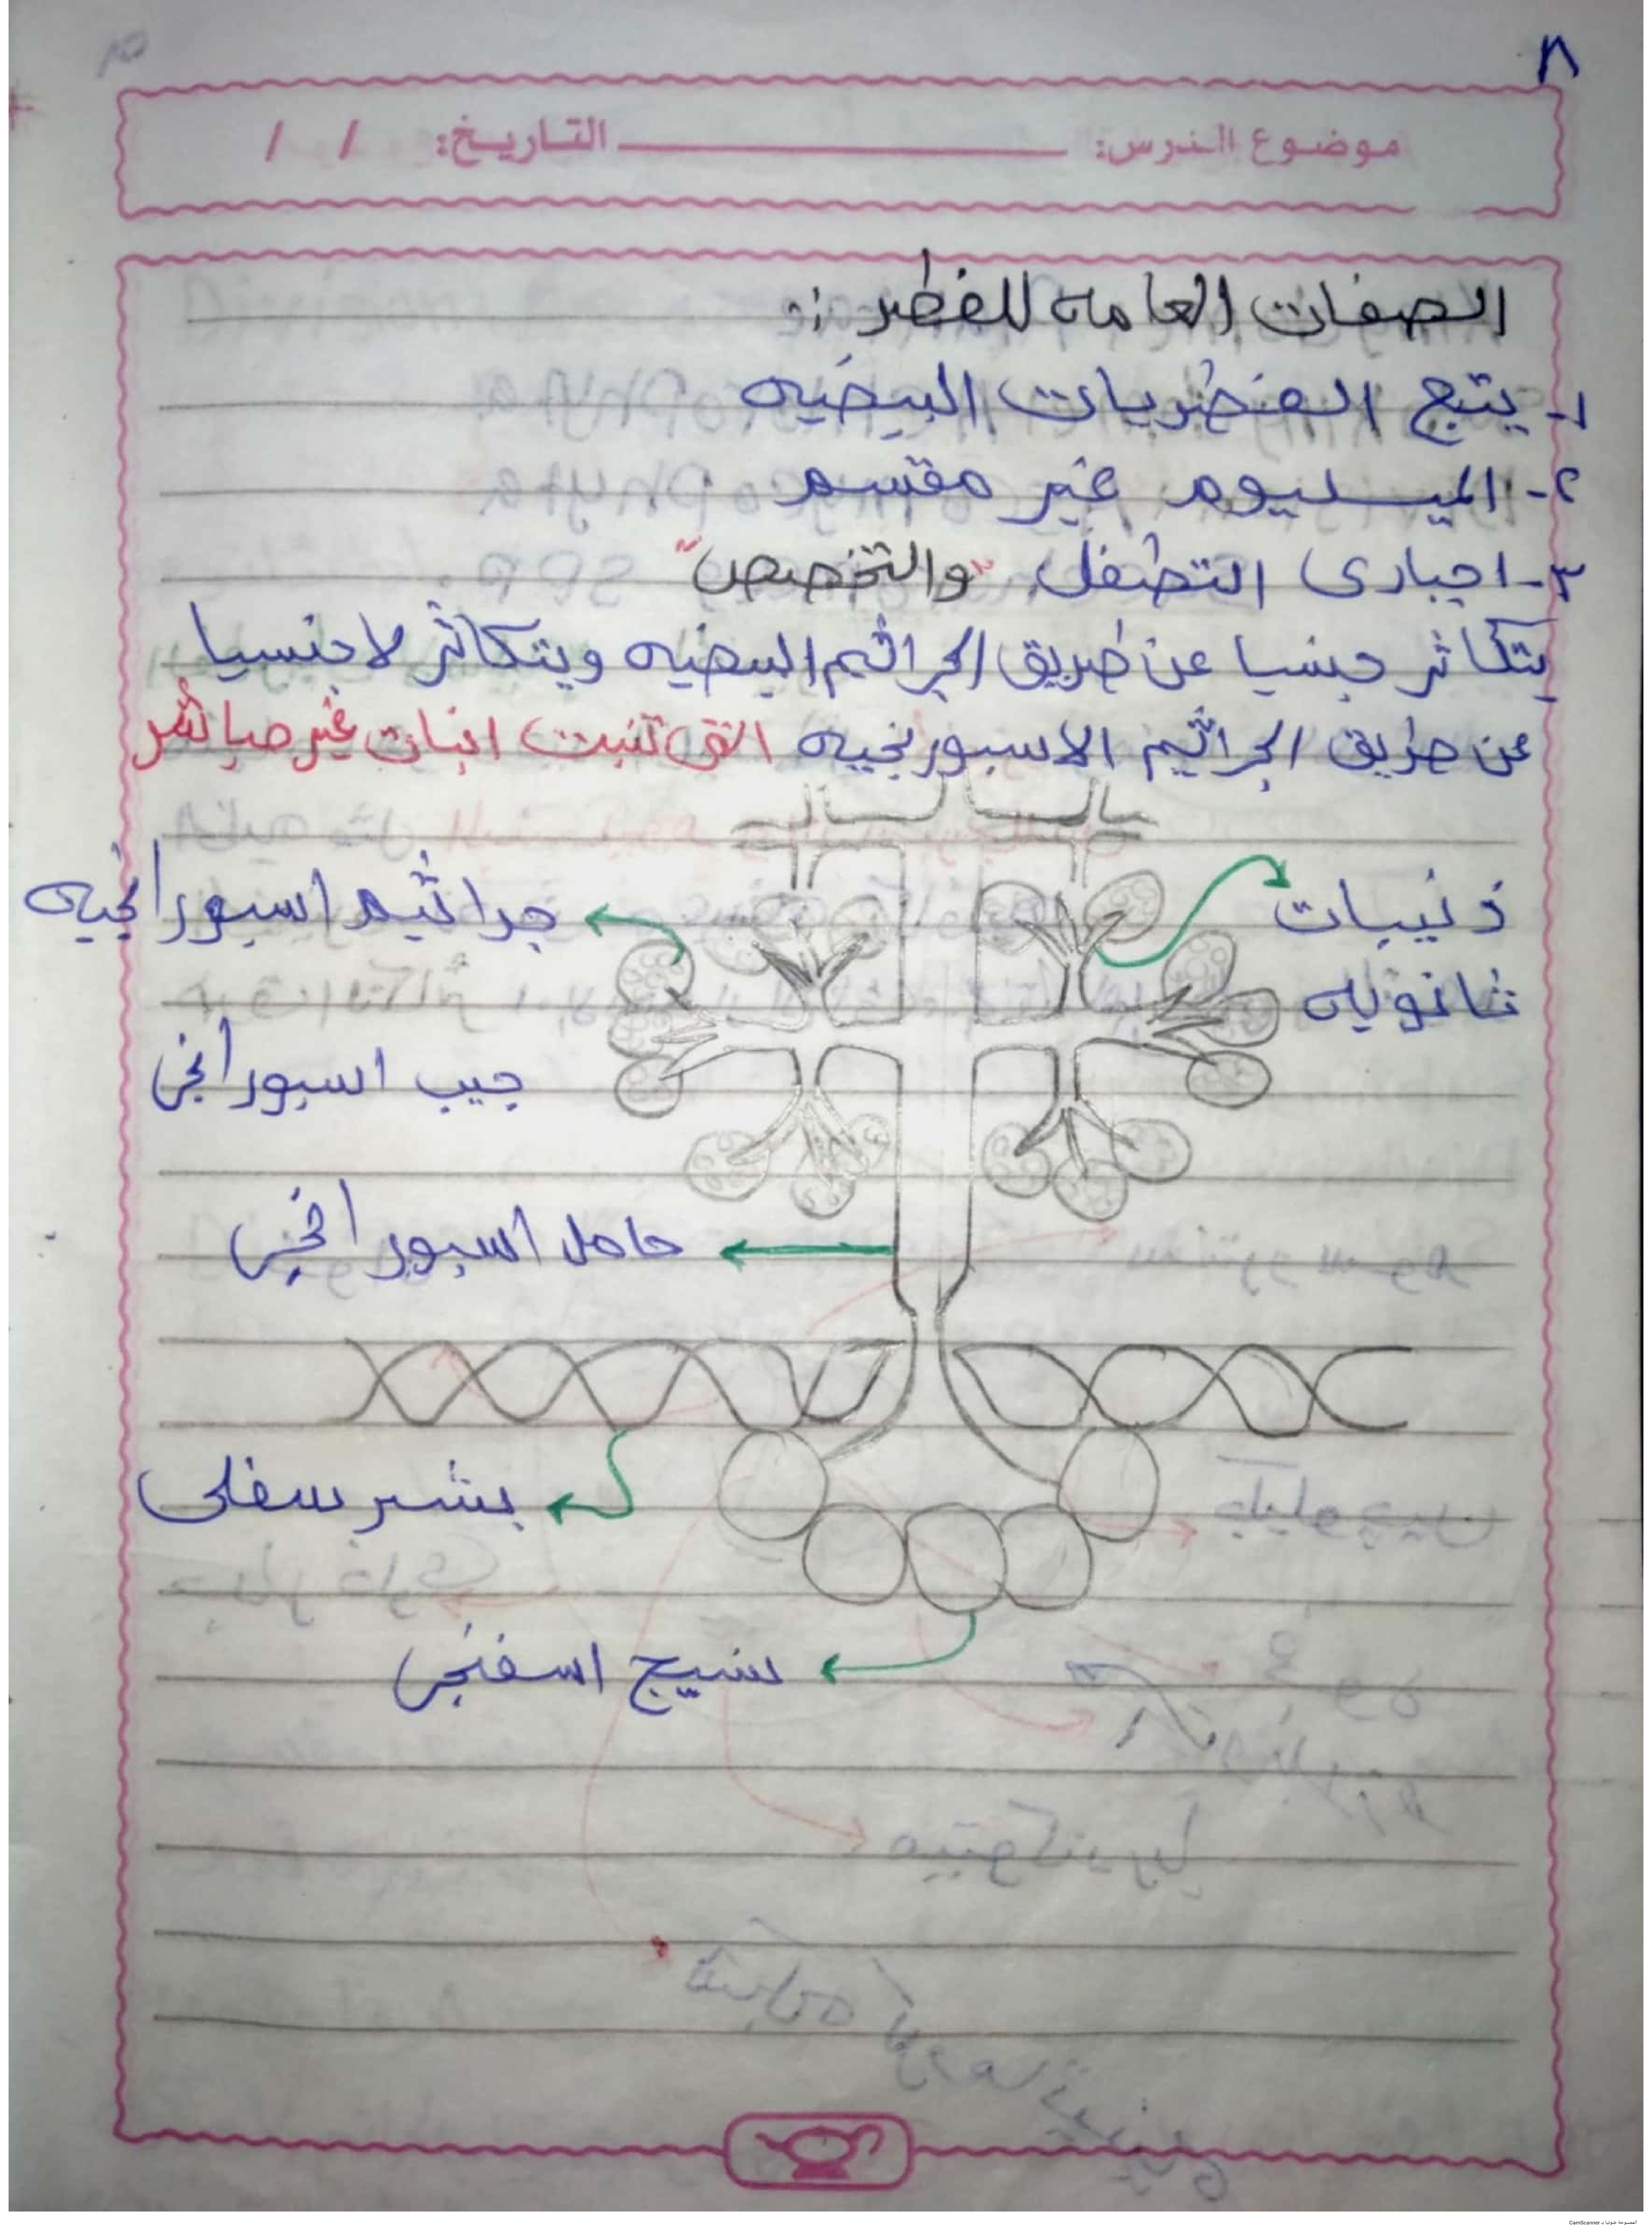 ٨
موضوع الدرس: التاريخ: / /
الصفات العامه للفطر :-
١- يتبع الفطريات البيضيه
٢- الميسليوم غير مقسم
٣- اجبارى التطفل "والتخصص"
يتكاثر جنسيا عن طريق الجراثيم البيضيه ويتكاثر لاجنسيا
عن طريق الجراثيم الاسبورنجيه التى تنبت انبات غير مباشر
ذنيبات
ثانويه
جراثيم اسبورانجيه
جيب اسبورانجى
حامل اسبورانجى
بشر سفلى
نسيج اسفنجى
الممسوحة ضوئيا بـ CamScanner